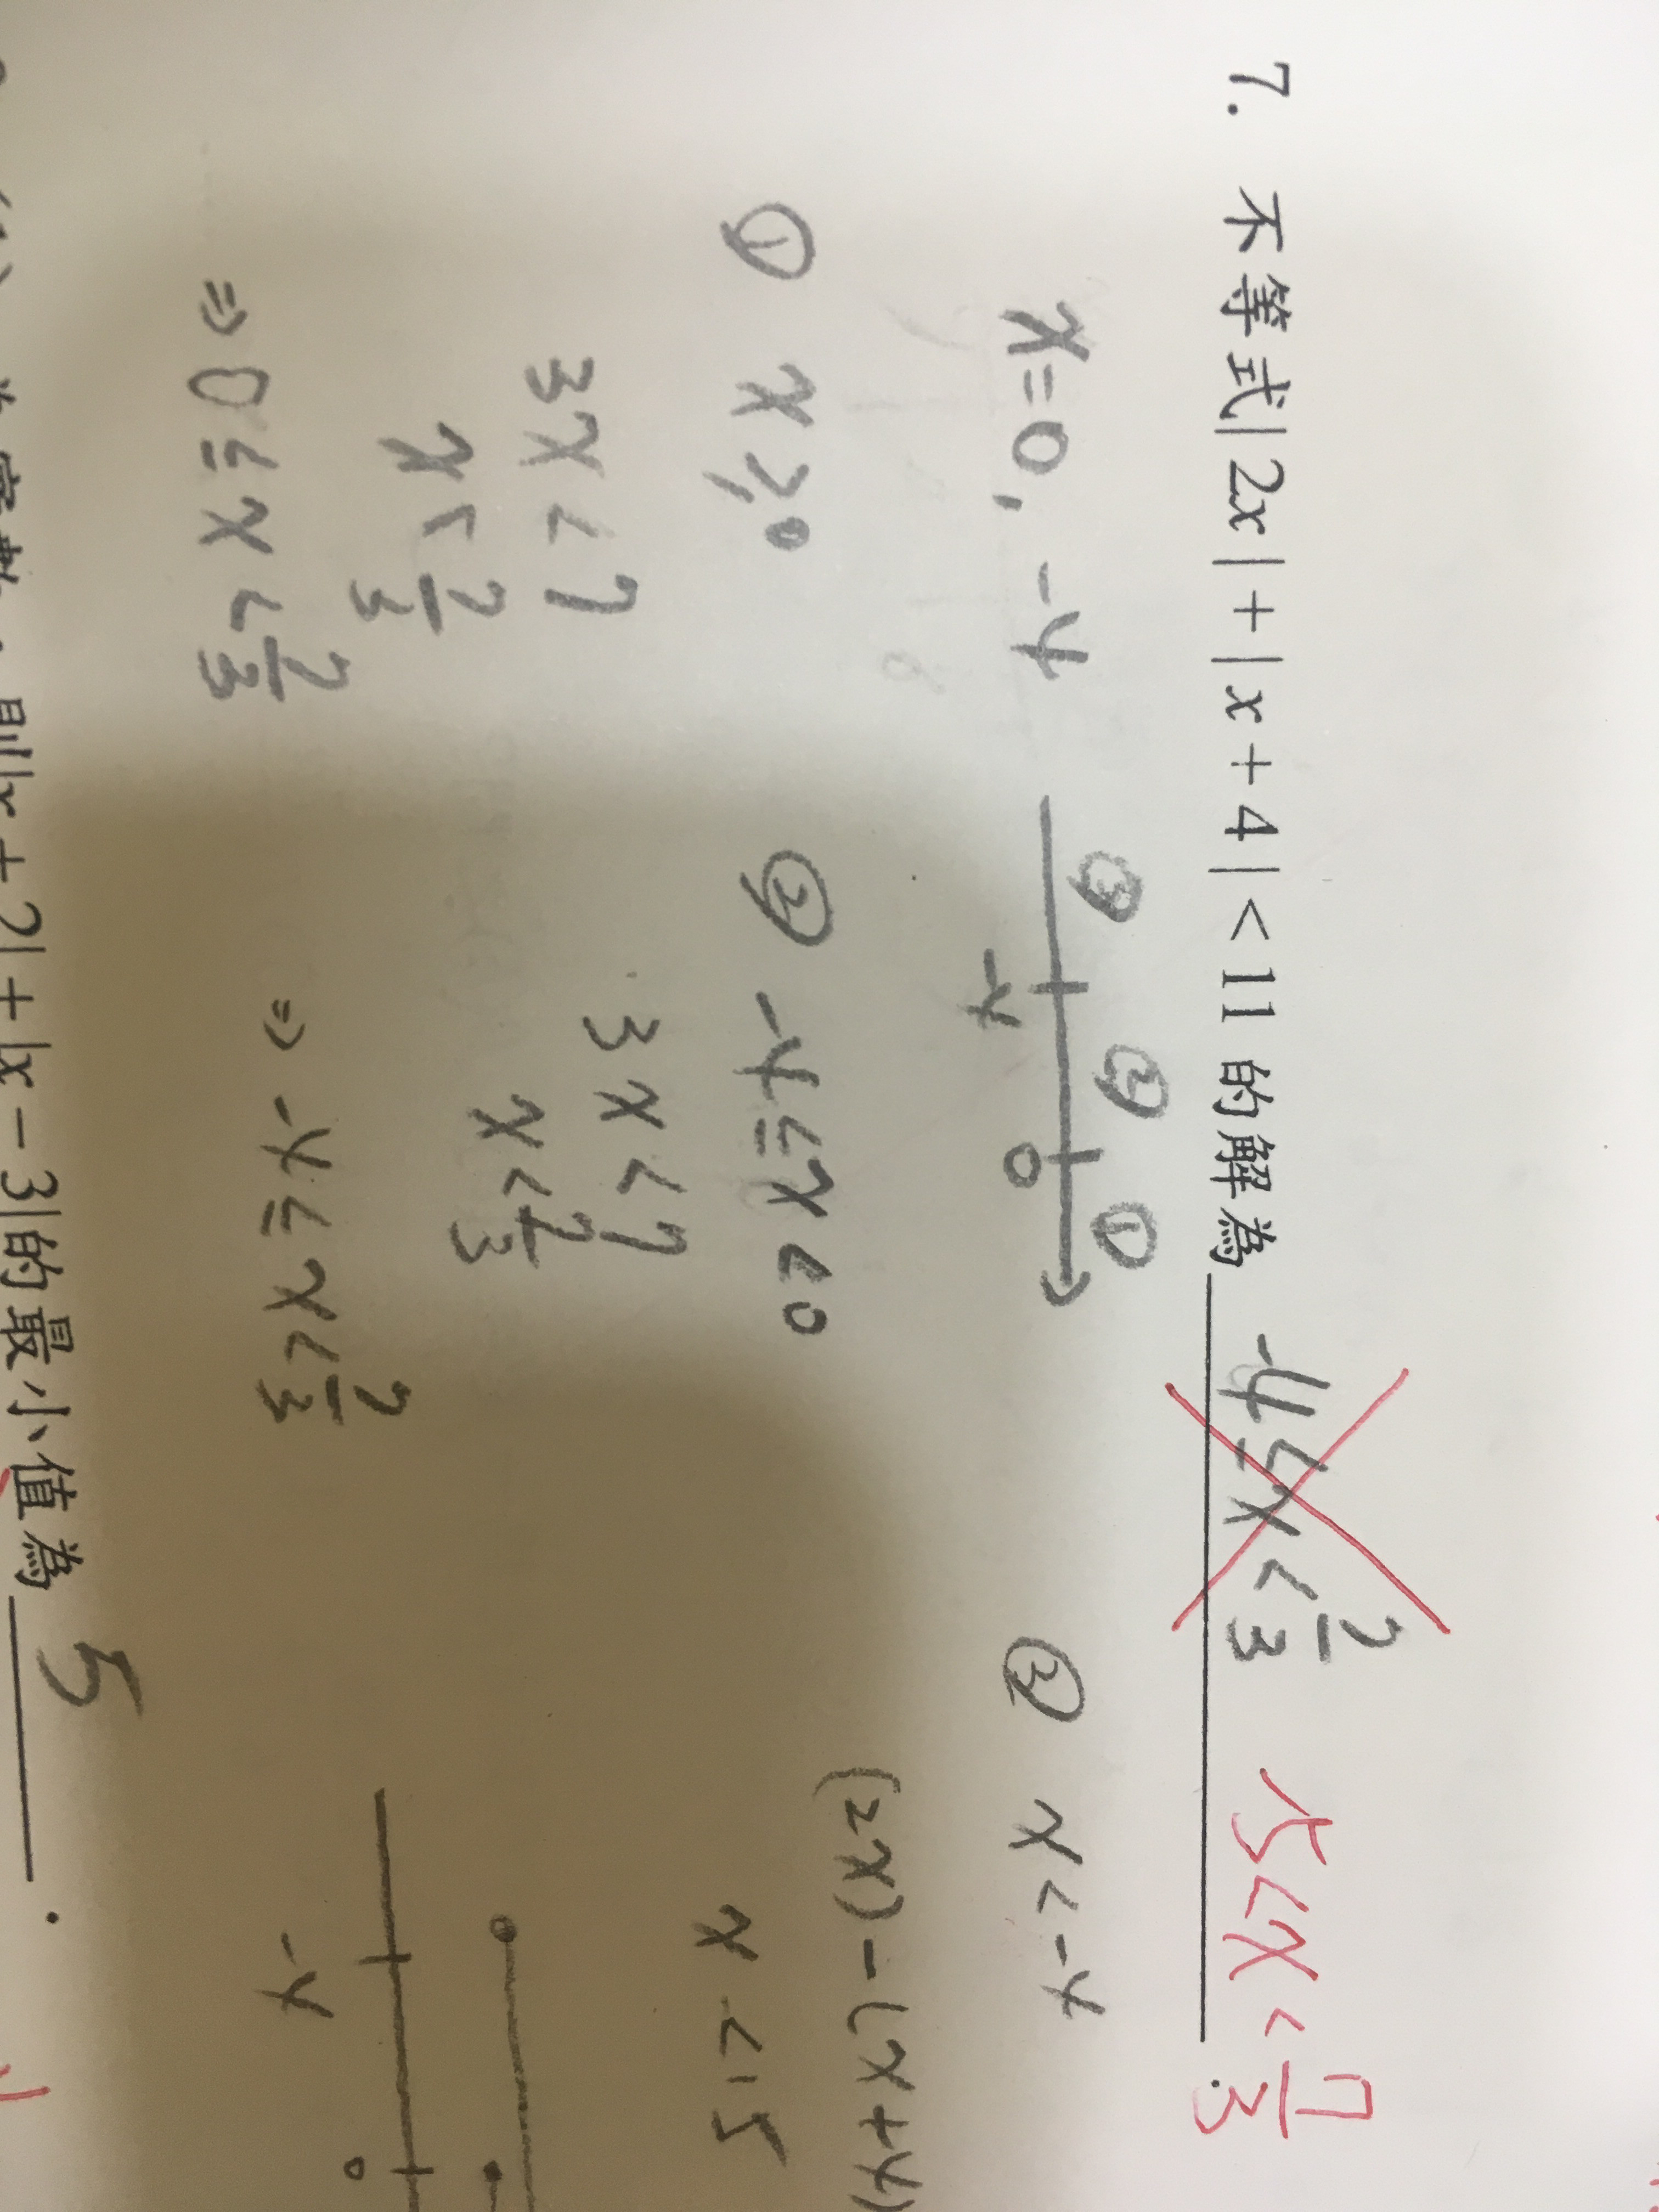 7. 不等式|2x|+|x+4|<11 的解為 -4≤x<7/3 -5<x<7/3.
x=0, -4
③ ② ①
-4 0
① x≥0
3x<7
x<7/3
⇒ 0≤x<7/3
② -4≤x<0
3x<7
x<7/3
⇒ -4≤x<7/3
③ x<-4
(2x)-(x+4)
x<15
-4 0
則|x+2|+|x-3|的最小值為 5.